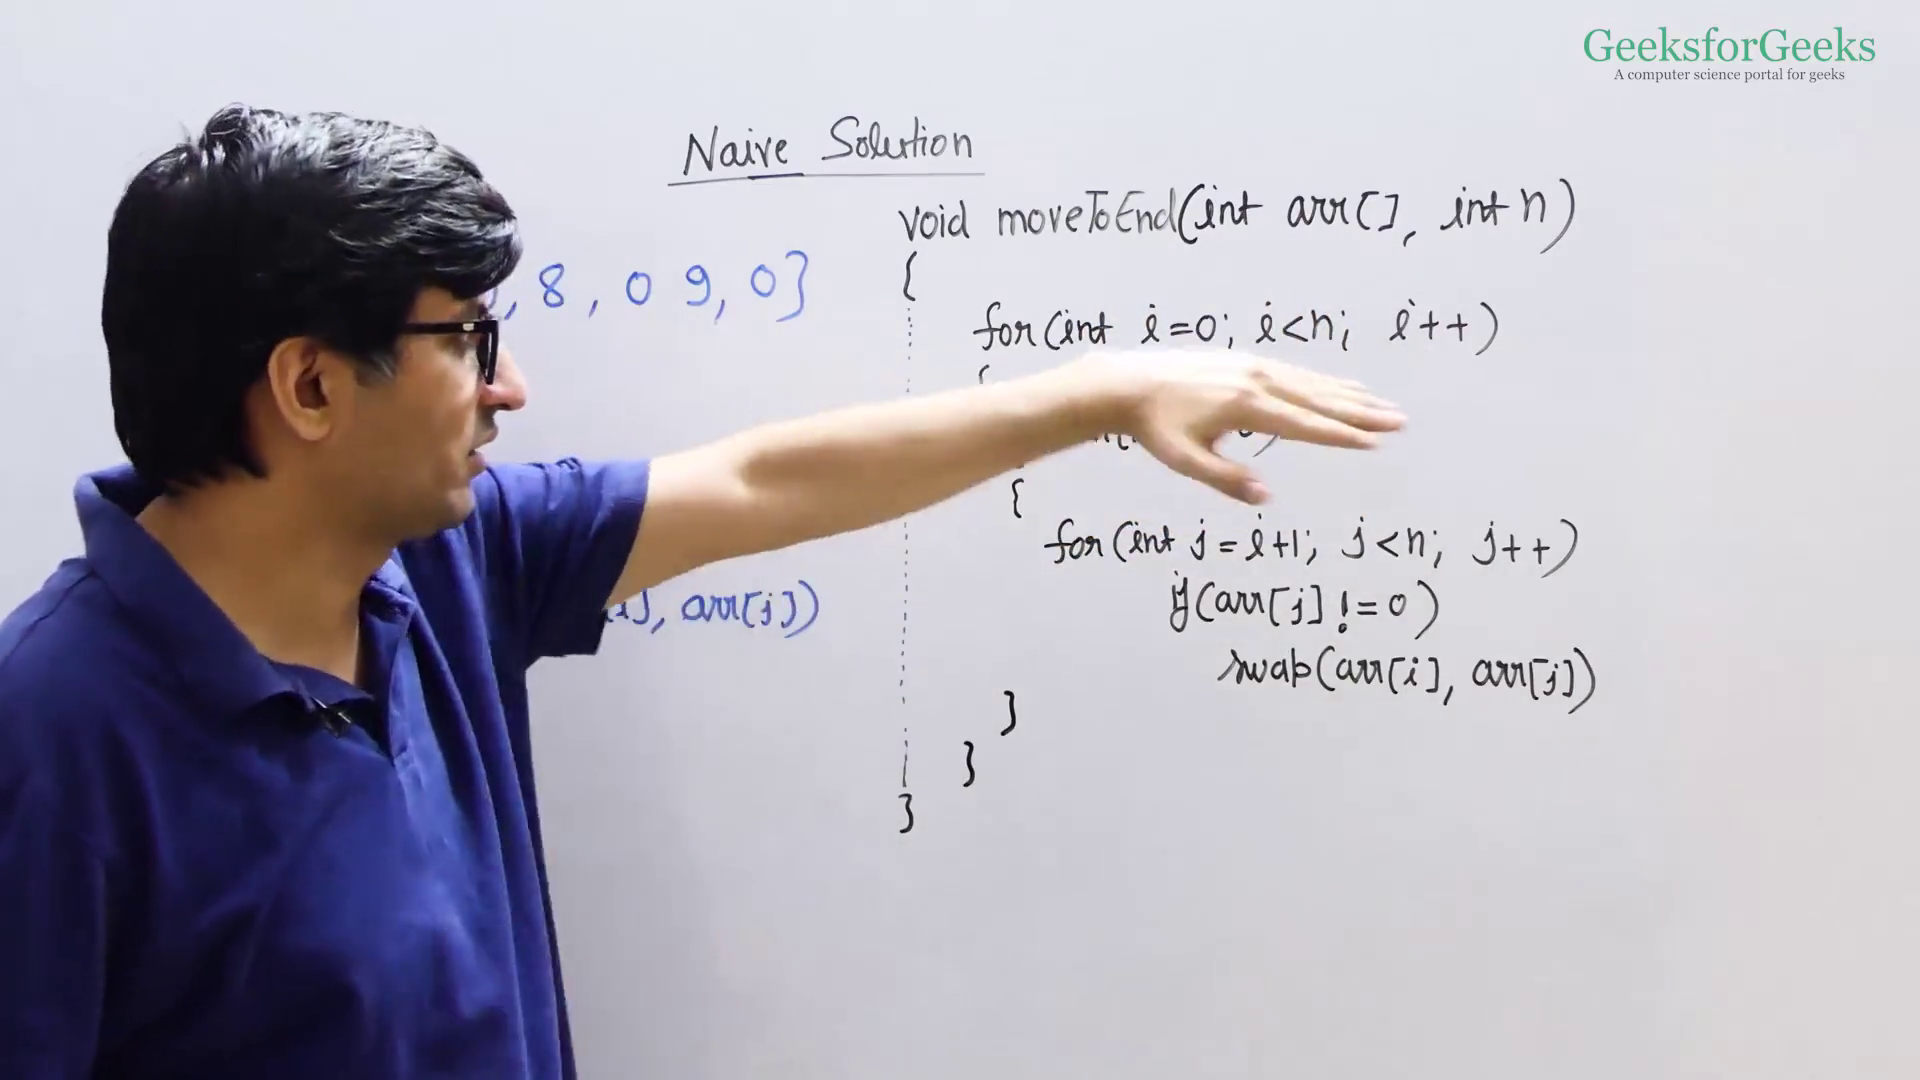 GeeksforGeeks
A computer science portal for geeks
Naive Solution
void moveToEnd(int arr[], int n)
{
, 8 , 0 9, 0}
for(int i=0; i<n; i++)
{
{
for(int j=i+1; j<n; j++)
if(arr[j] != 0)
, arr[j])
swap(arr[i], arr[j])
}
}
}